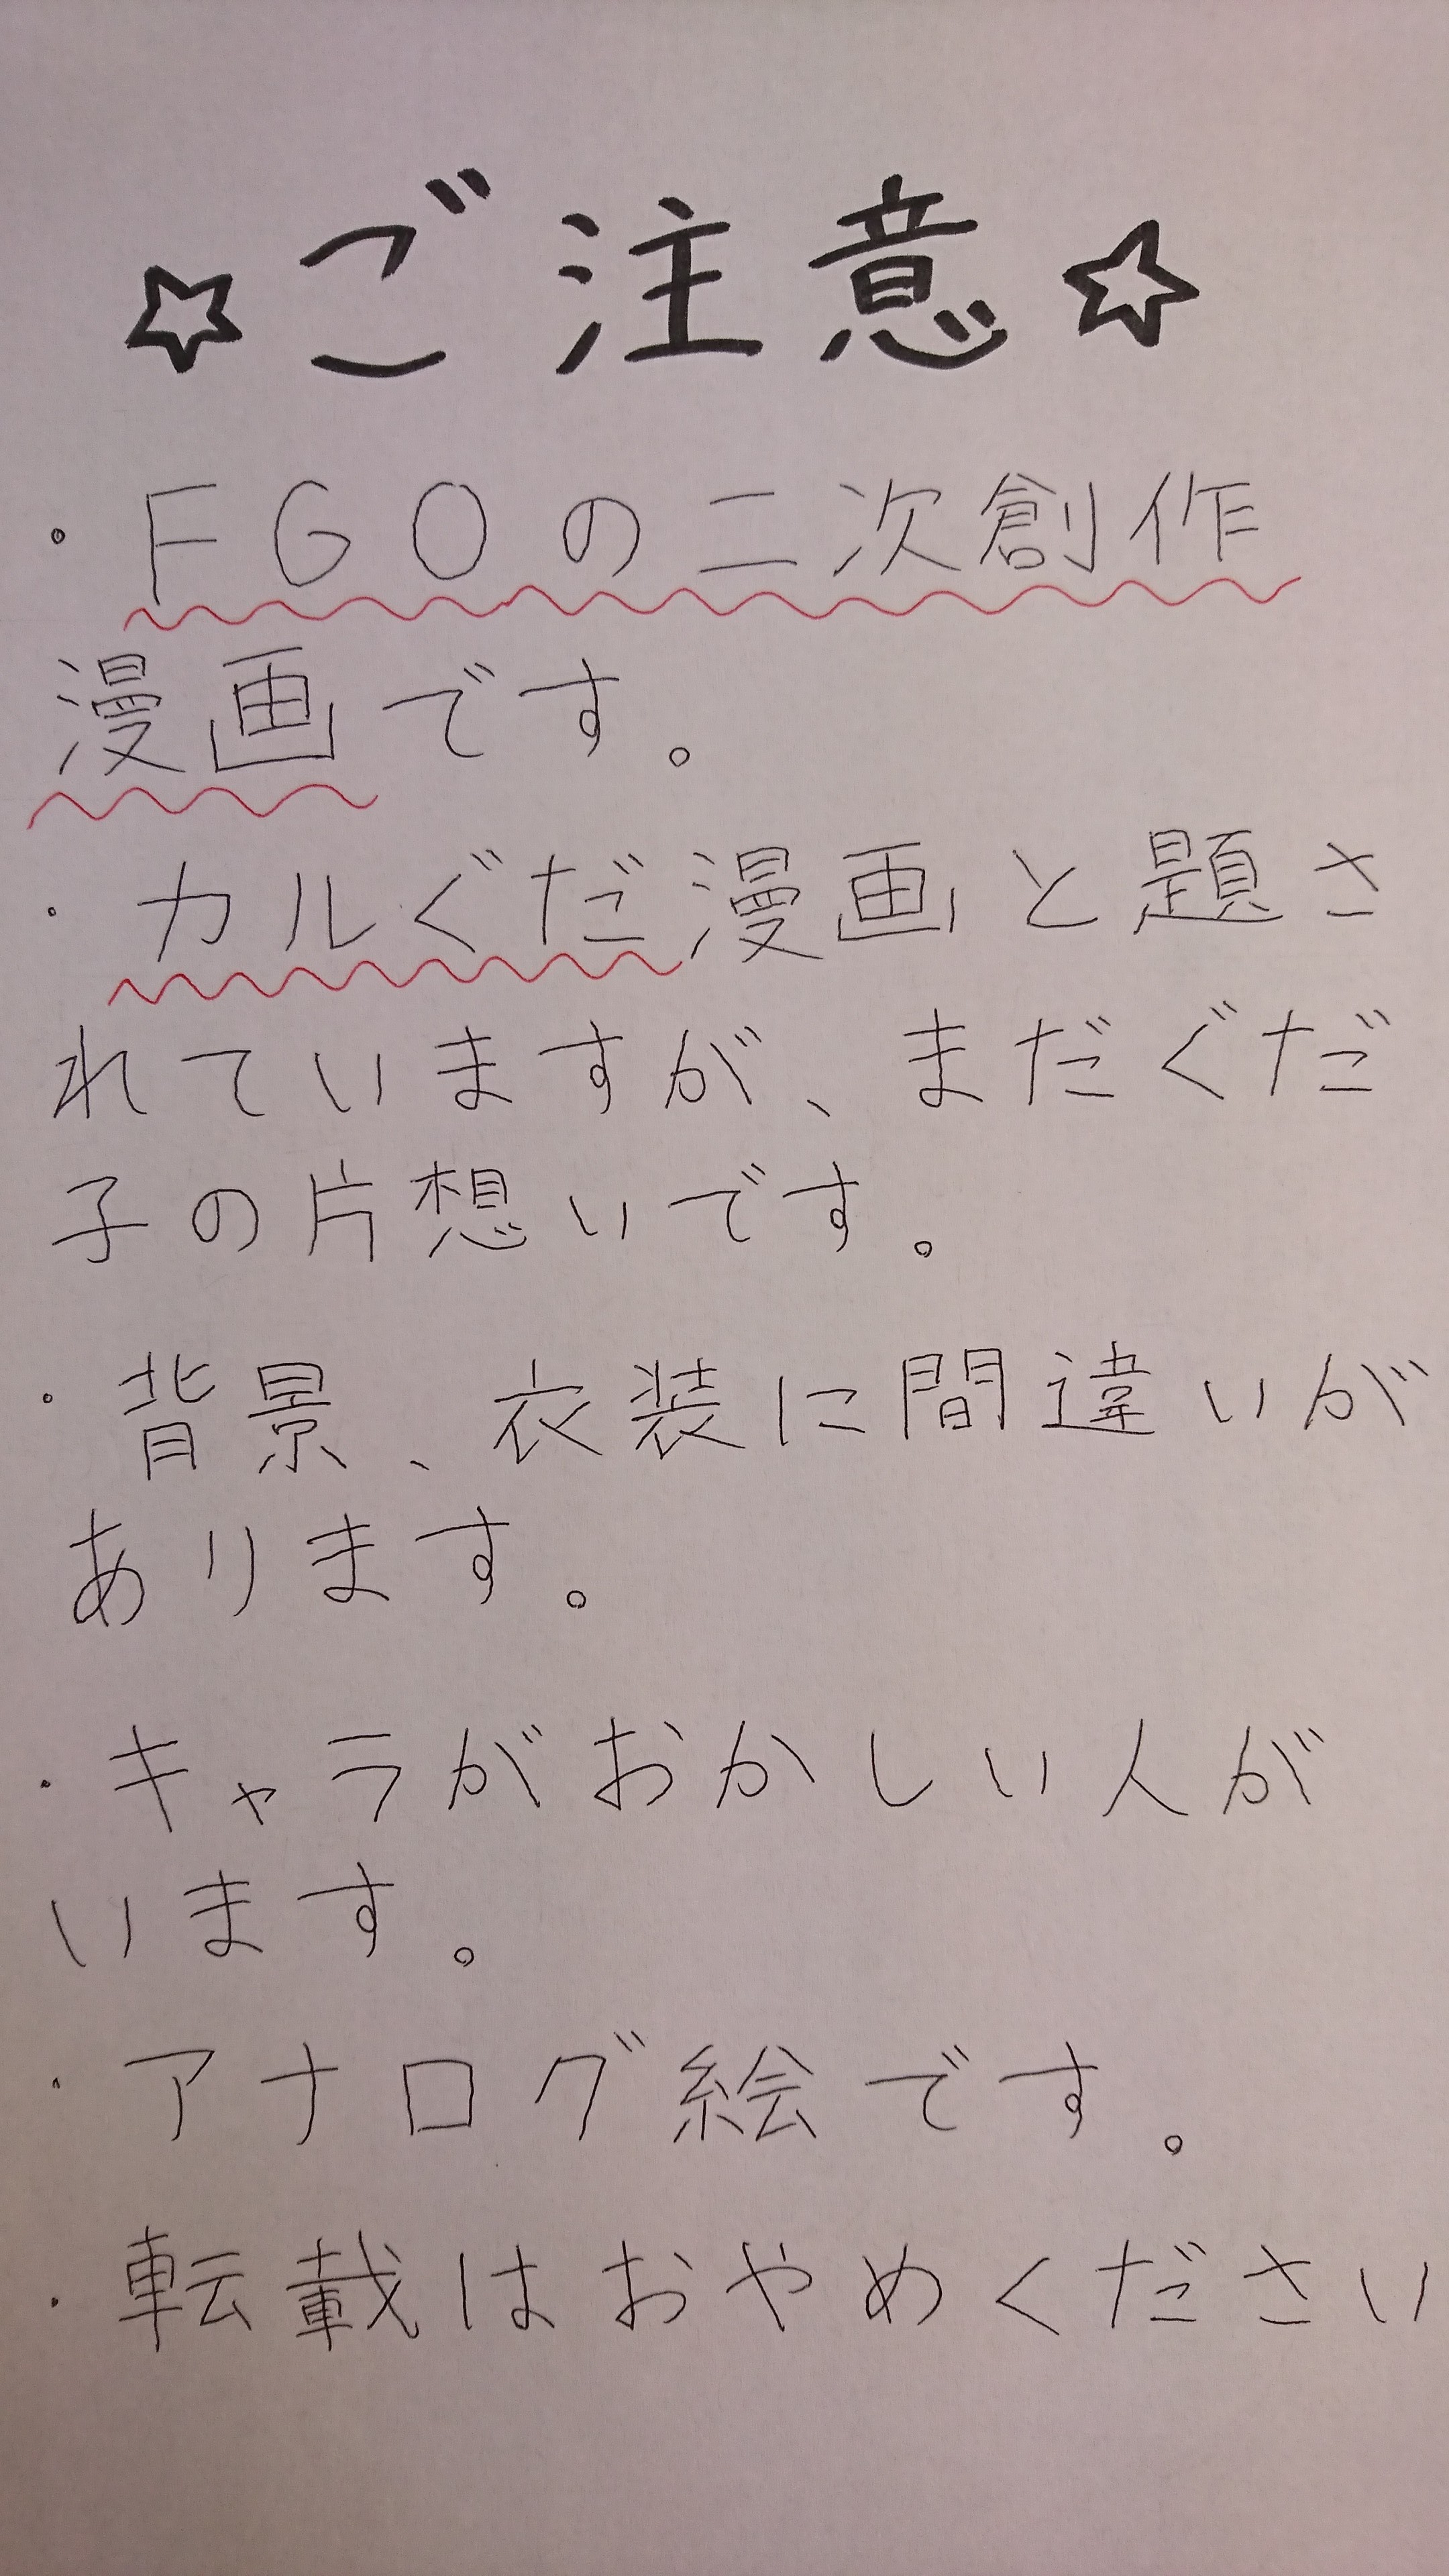 ☆ご注意☆
・FGOの二次創作
漫画です。
・カルぐだ漫画と題さ
れていますが、まだぐだ
子の片想いです。
・背景、衣装に間違いが
あります。
・キャラがおかしい人が
います。
・アナログ絵です。
・転載はおやめください